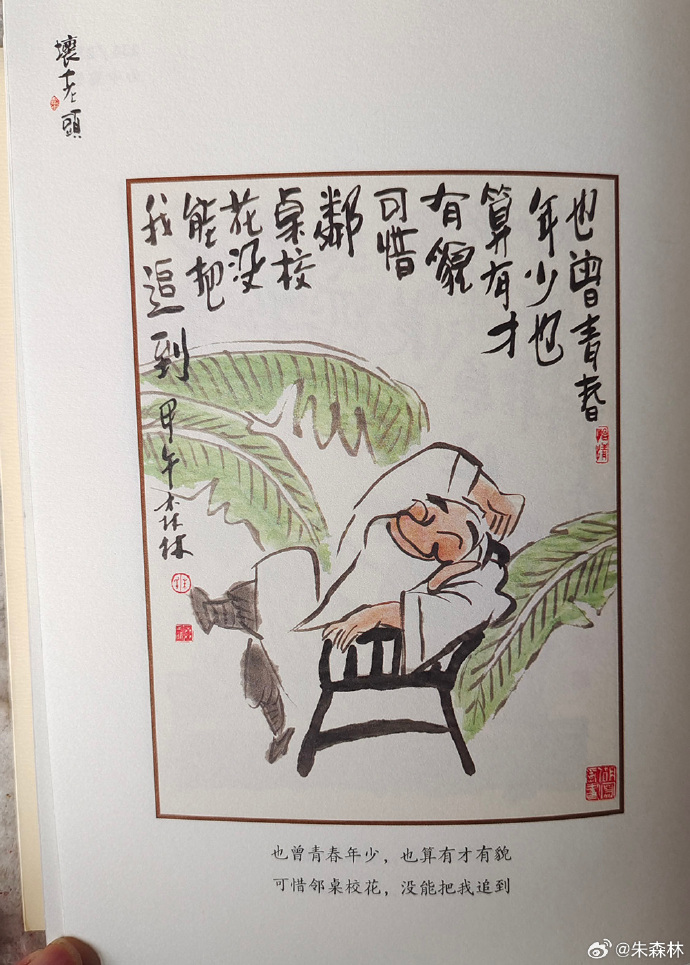 壞老頭
也曾青春
年少也
算有才
有貌
可惜
鄰
桌校
花没
能把
我追到
甲午森林
也曾青春年少，也算有才有貌
可惜邻桌校花，没能把我追到
@朱森林